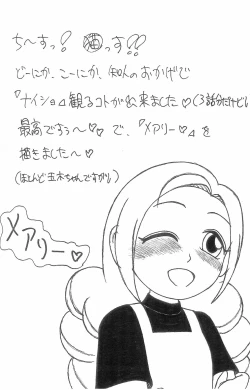 ち〜すっ! 猫っす!!
どーにか、こーにか、知人のおかげで
『ナイショ』観るコトが出来ました♡(3話分だけど)
最高ですぅ〜♡♡ で、『メアリー♡』を
描きました〜♡
(ほとんど五木ちゃんですが)
メアリー♡